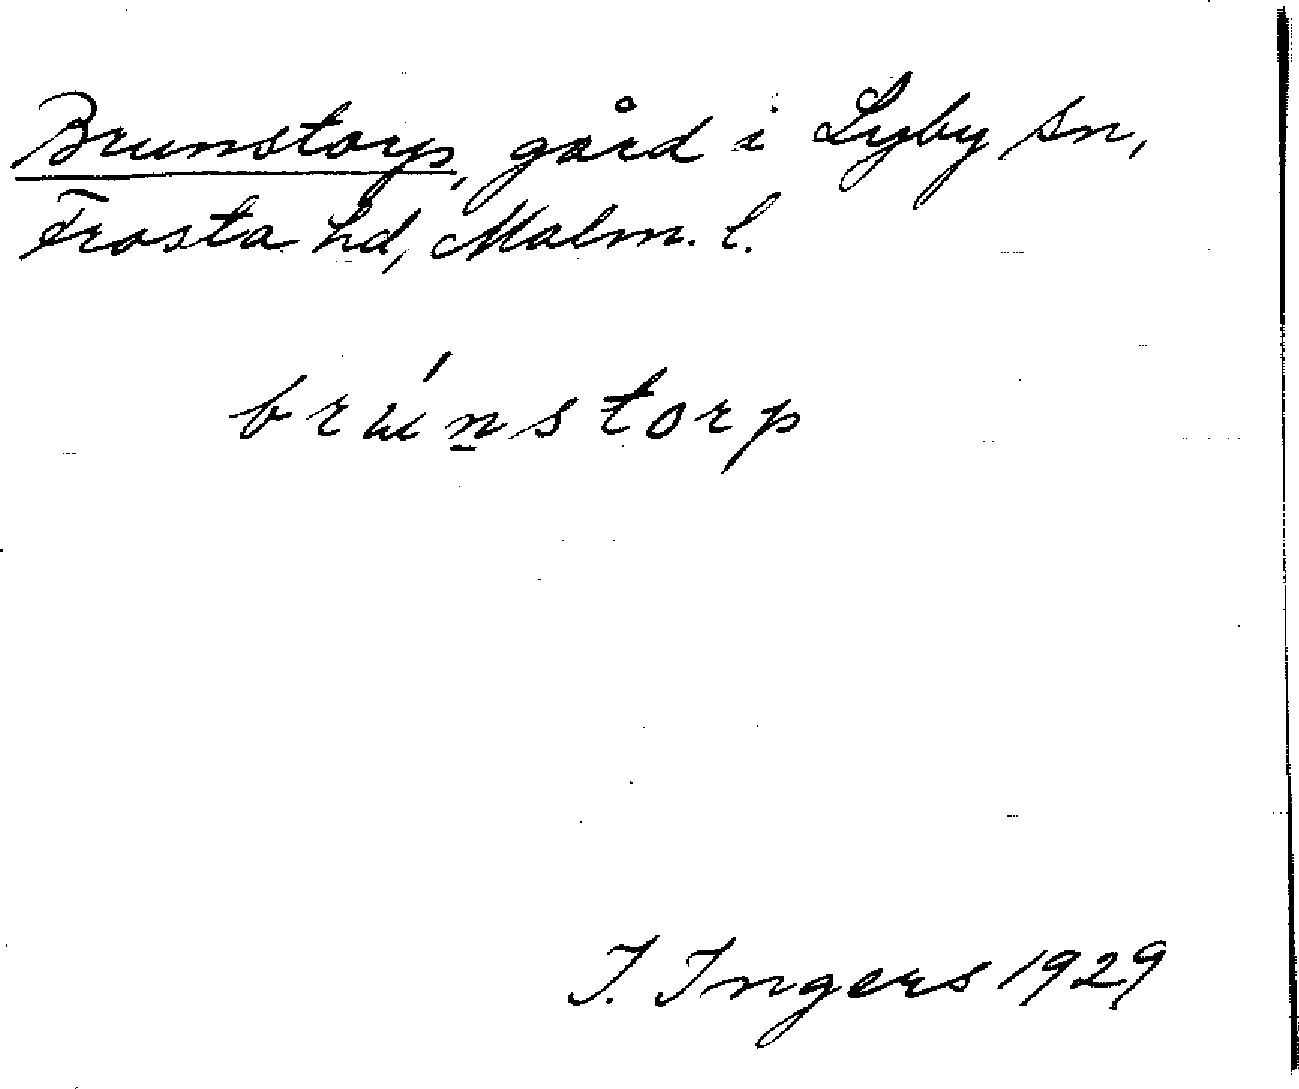 Brunstorp, gård i Lyby sn,
Frosta hd, Malm. l.
brún̲storp
I. Ingers 1929